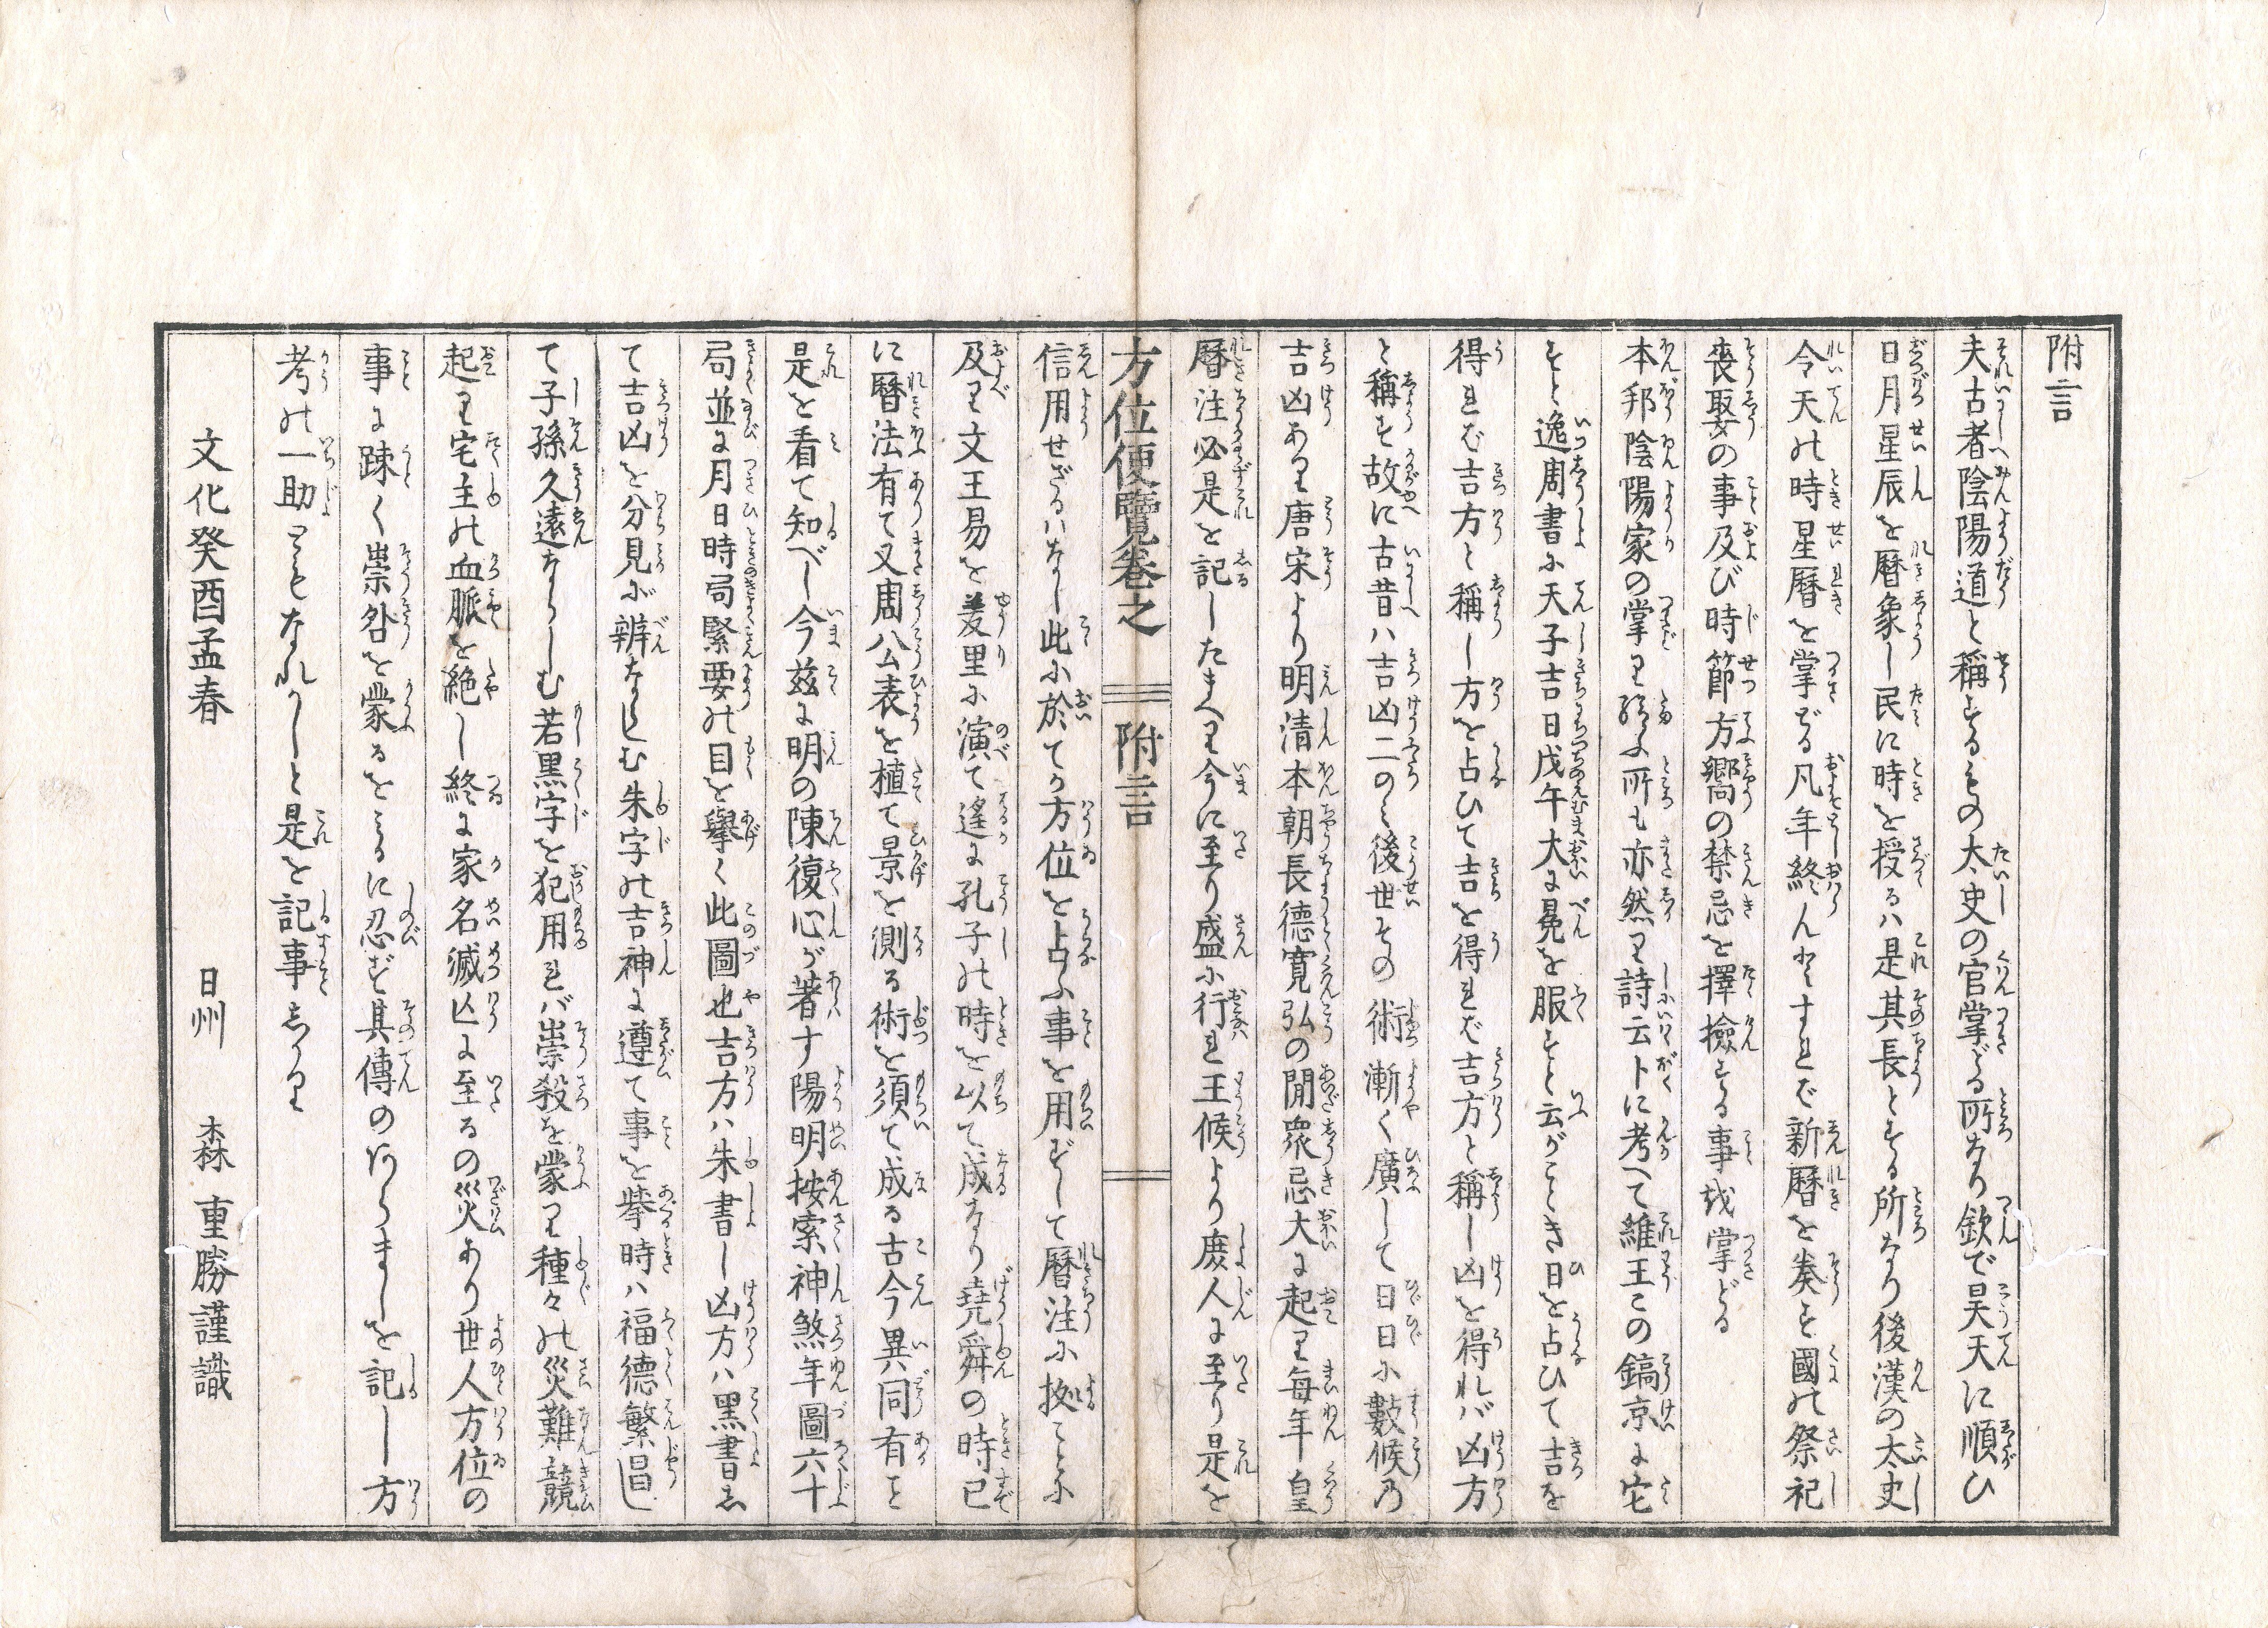 附言
夫古者陰陽道と稱するもの太史の官掌どる所なり欽で昊天に順ひ
日月星辰を暦象し民に時を授るハ是其長とする所なり後漢の太史
令天の時星暦を掌どる凡年終んとすれば新暦を奏す國の祭祀
喪娶の事及び時節方嚮の禁忌を擇撿する事を掌どる
本邦陰陽家の掌り給ふ所も亦然り詩云卜に考へて維王この鎬京に宅
すと逸周書に天子吉日戊午大に冕を服すと云がごとき日を占ひて吉を
得れば吉方と稱し方を占ひて吉を得れば吉方と稱し凶を得れバ凶方
と稱す故に古昔ハ吉凶二のミ後世その術漸く廣して日日に數候乃
吉凶あり唐宋より明清本朝長德寛弘の間衆忌大に起り毎年皇
暦注必是を記したまへり今に至り盛に行れ王候より庻人に至り是を
方位便覽卷之 附言
信用せざるハなし此に於てか方位を占ふ事を用ずして暦注に拠ことに
及り文王易を羑里に演て遙に孔子の時を以て成なり堯舜の時已
に暦法有て又周公表を植て景を測る術を須て成る古今異同有こと
是を看て知べし今兹に明の陳復心が著す陽明按索神煞年圖六十
局並に月日時局緊要の目を擧く此圖也吉方ハ朱書し凶方ハ黒書し
て吉凶を分見が辨ならしむ朱字の吉神に遵て事を擧時ハ福德繁昌し
て子孫久遠ならしむ若黒字を犯用れバ崇殺を蒙り種々の災難競
起り宅主の血脈を絶し終に家名滅亡に至るの災あり世人方位の
事に踈く崇咎を蒙るをミるに忍ず其傳のあらましを記し方
考の一助ともなれかしと是を記事しかり
文化癸酉孟春　日州　森　重勝謹識